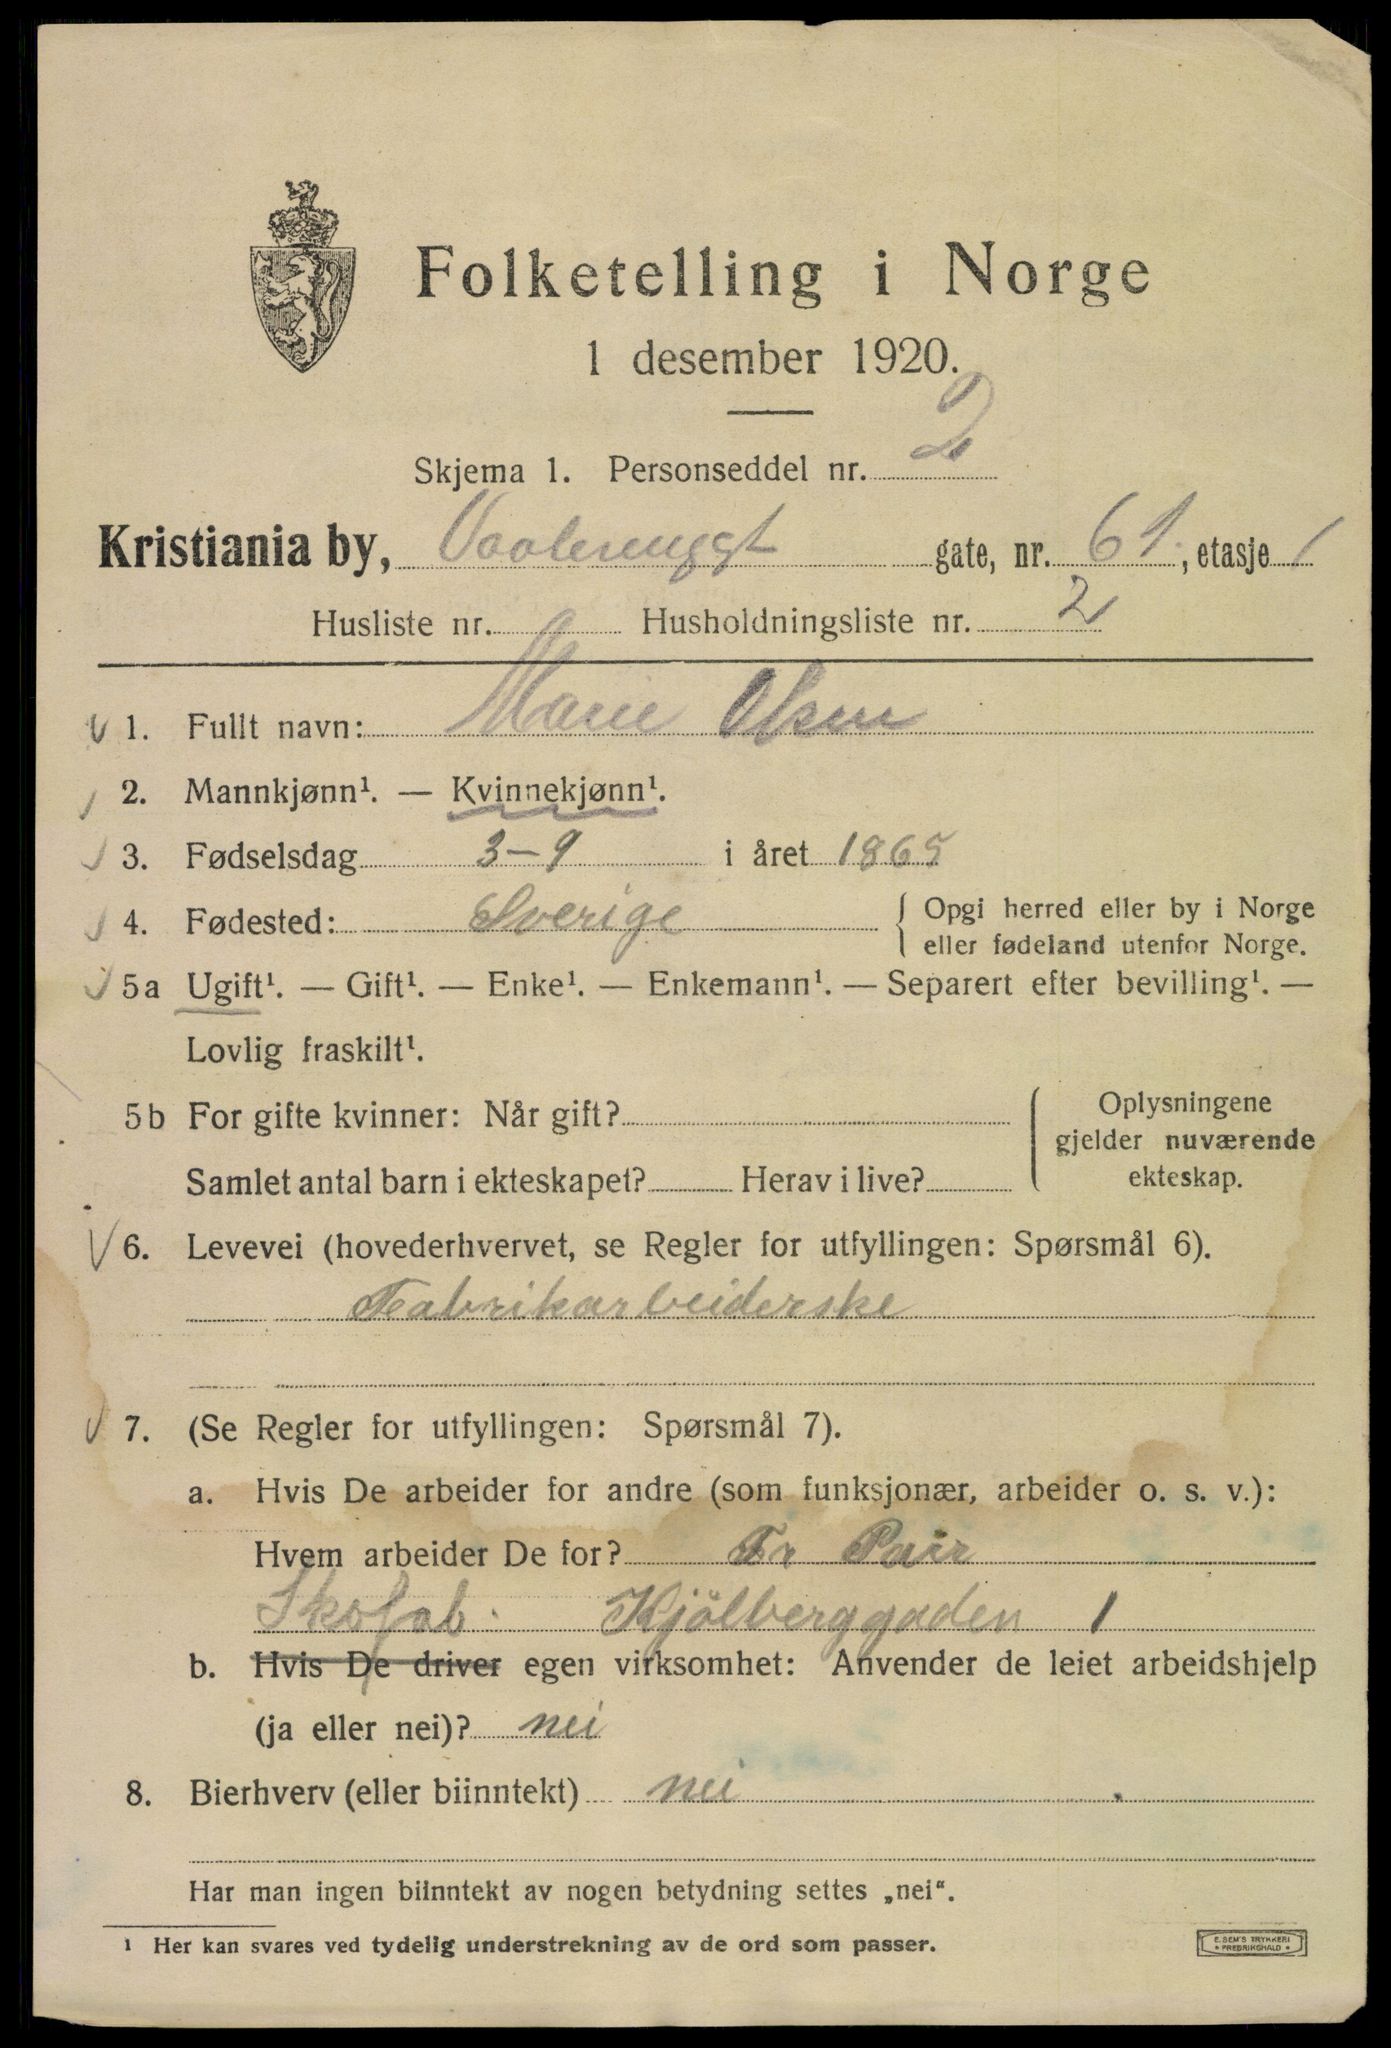 Folketelling i Norge
1 desember 1920.
Skjema 1. Personseddel nr. 2
Kristiania by, Vaalerenggt gate, nr. 61, etasje 1
Husliste nr. Husholdningsliste nr. 2
1. Fullt navn: Marie Olsen
2. Mannkjønn¹. — Kvinnekjønn¹.
3. Fødselsdag 3-9 i året 1865
4. Fødested: Sverige { Opgi herred eller by i Norge
eller fødeland utenfor Norge.
5a Ugift¹. — Gift¹. — Enke¹. — Enkemann¹. — Separert efter bevilling¹. —
Lovlig fraskilt¹.
5b For gifte kvinner: Når gift?
Samlet antal barn i ekteskapet? Herav i live?
Oplysningene
gjelder nuværende
ekteskap.
6. Levevei (hovederhvervet, se Regler for utfyllingen: Spørsmål 6).
Fabrikarbeiderske
7. (Se Regler for utfyllingen: Spørsmål 7).
a. Hvis De arbeider for andre (som funksjonær, arbeider o. s. v.):
Hvem arbeider De for? Fr
Skofab. Kjölberggaden 1
b. Hvis De driver egen virksomhet: Anvender de leiet arbeidshjelp
(ja eller nei)? nei
8. Bierhverv (eller biinntekt) nei
Har man ingen biinntekt av nogen betydning settes „nei“.
¹ Her kan svares ved tydelig understrekning av de ord som passer.
E. SEM'S TRYKKERI
• FREDRIKSHALD •